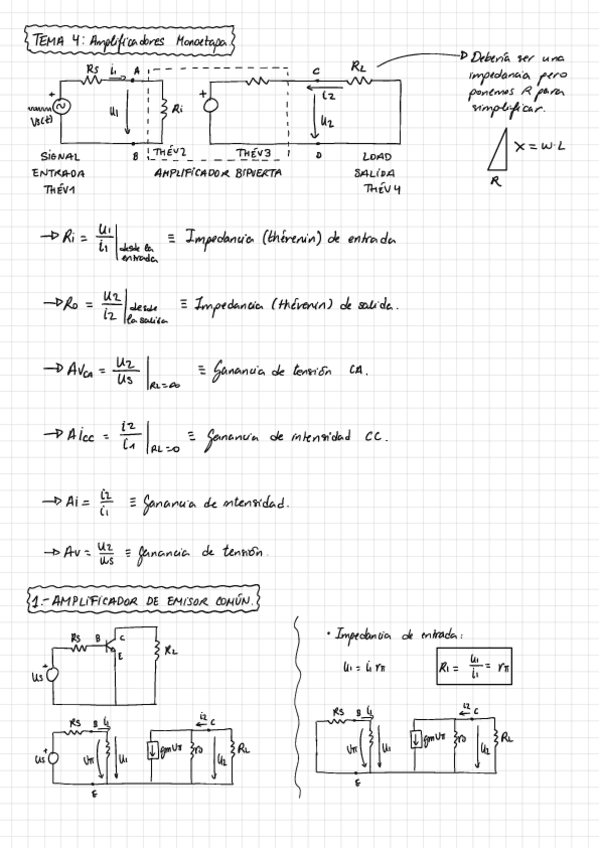 TEMA 4: Amplificadores Monoetapa
Rs i1 A C RL
+ u1 Ri + i2 u2
Vs(t)
B THÉV2 THÉV3 D
SIGNAL ENTRADA THÉV1
AMPLIFICADOR BIPUERTA
LOAD SALIDA THÉV4
Debería ser una
impedancia pero
ponemos R para
simplificar.
X = W·L
R
→ Ri = u1/i1 | desde la entrada ≡ Impedancia (thévenin) de entrada
→ Ro = u2/i2 | desde la salida ≡ Impedancia (thévenin) de salida.
→ AvCA = u2/us | RL=∞ ≡ Ganancia de tensión CA.
→ Aicc = i2/i1 | RL=0 ≡ Ganancia de intensidad CC.
→ Ai = i2/i1 ≡ Ganancia de intensidad.
→ Av = u2/us ≡ Ganancia de tensión.
1.- AMPLIFICADOR DE EMISOR COMÚN.
Rs B C E RL
us +
Rs B i1 i2 C
us + Vπ u1 gmVπ ro u2 RL
E
• Impedancia de entrada:
u1 = i1 rπ
Ri = u1/i1 = rπ
Rs B i1 i2 C
Vπ u1 gmVπ ro u2 RL
E